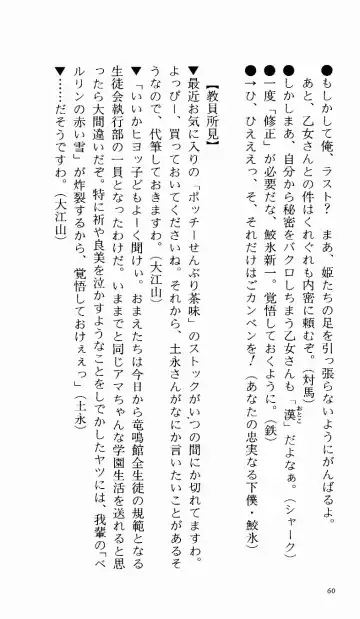 ●もしかして俺、ラスト？　まあ、姫たちの足を引っ張らないようにがんばるよ。
あと、乙女さんとの件はくれぐれも内密に頼むぞ。（対馬）
●しかしまあ、自分から秘密をバクロしちまう乙女さんも「漢」だよなぁ。（シャーク）
おとこ
●一度「修正」が必要だな、鮫氷新一。覚悟しておくように。（鉄）
→ひ、ひえええっ、そ、それだけはごカンベンを！（あなたの忠実なる下僕・鮫氷）
【教員所見】
▼最近お気に入りの「ポッチーせんぶり茶味」のストックがいつの間にか切れてますわ。
よっぴー、買っておいてくださいね。それから、土永さんがなにか言いたいことがあるそ
うなので、代筆しておきますわ。（大江山）
▼「いいかヒヨッ子どもよーく聞けぃ。おまえたちは今日から竜鳴館全生徒の規範となる
生徒会執行部の一員となったわけだ。いままでと同じアマちゃんな学園生活を送れると思
ったら大間違いだぞ。特に祈や良美を泣かすようなことをしでかしたヤツには、我輩の「ベ
ルリンの赤い雪」が炸裂するから、覚悟しておけぇぇっ」（土永）
▼……だそうですわ。（大江山）
60